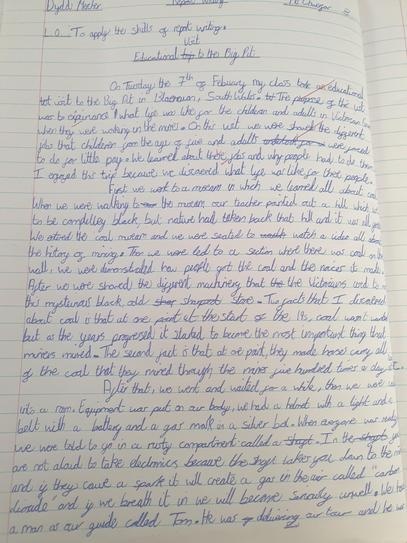 Dydd Mawrth Report Writing
L.O. To apply the skills of report writing.
Visit
Educational trip to the Big Pit.
On Tuesday the 7th of February my class took an educational
visit to the Big Pit in Blaenavon, South Wales. The purpose of the visit
was to experience what life was like for the children and adults in Victorian
when they were working in the mines. On this visit we were shown the different
jobs that children from the age of five and adults were forced
to do for little pay. We learned about these jobs and why people had to do them
I enjoyed this trip because we discovered what life was like for these people.
First we went to a museum in which we learned all about coal.
When we were walking to the museum, our teacher pointed out a hill which
to be completley black, but nature had taken back that hill and it was all
We entered the coal museum and we were seated to watch a video all about
the history of mining. Then we were led to a section where there was coal on the
wall, we were demonstrated how people got the coal and the noises it made.
After we were shown the different machinery that the Victorians used to
this mysterious black, old stone. Two facts that I discovered
about coal is that at one point at the start of the 19s, coal wasn't
but as the years progressed it started to become the most important thing that
miners mined. The second fact is that at one point, they made horses carry all
of the coal that they mined through the mines five hundred times a day
After that, we went and waited for a while, then we were
into a room. Equipment was put on our body, we had a helmet with a light and a
belt with a battery and a gas mask in a silver box. When everyone was ready
we were told to go in a rusty compartment called a shaft. In the shaft you
are not alaud to take electronics because the shaft takes you down to the
and if they cause a spark it will create a gas in the air called "carbon
dioxide" and if we breath it in we will become seriously unwell. We had
a man as our guide called Tom. He was delivering our tour and he was